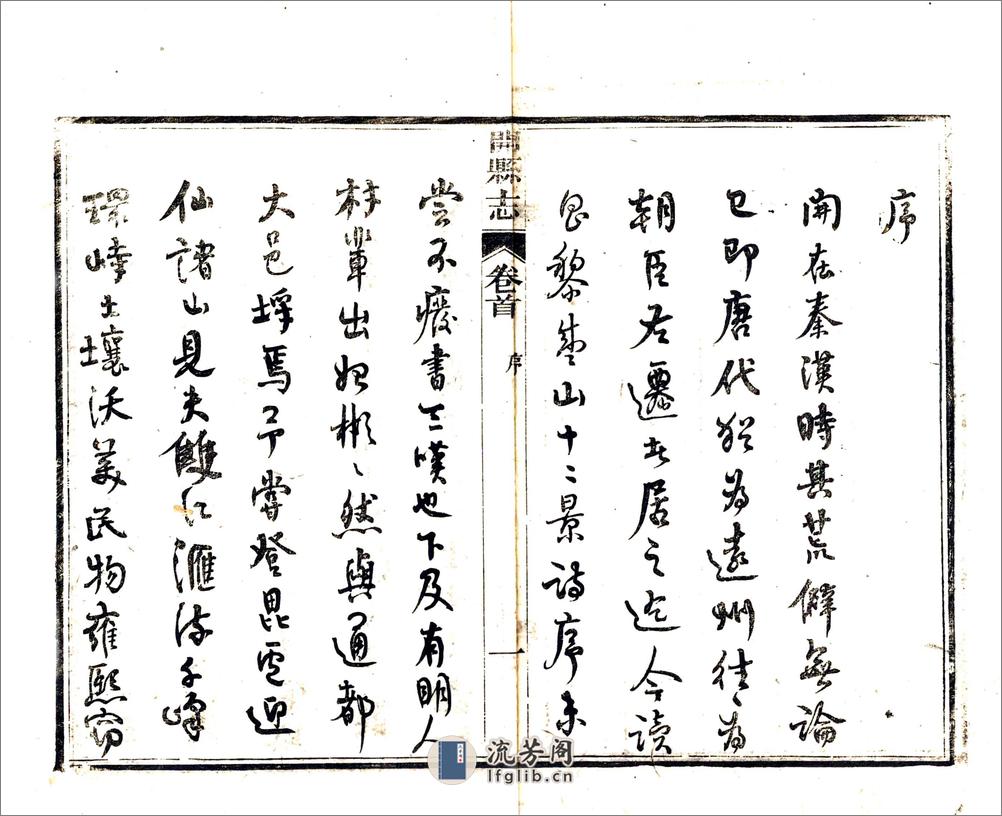 序
開在秦漢時其荒僻無論
已即唐代猶為遠州往〻為
朝臣左遷者居之迄今讀
昌黎盛山十二景詩序未
開縣志
卷首
序
一
嘗不廢書三嘆也下及有明人
材輩出始彬〻然與通都
大邑埒焉予嘗登毘盧迎
仙諸山見夫雙江滙流千峰
環峙土壤沃美民物雍熙竊
流芳阁
lfglib.cn